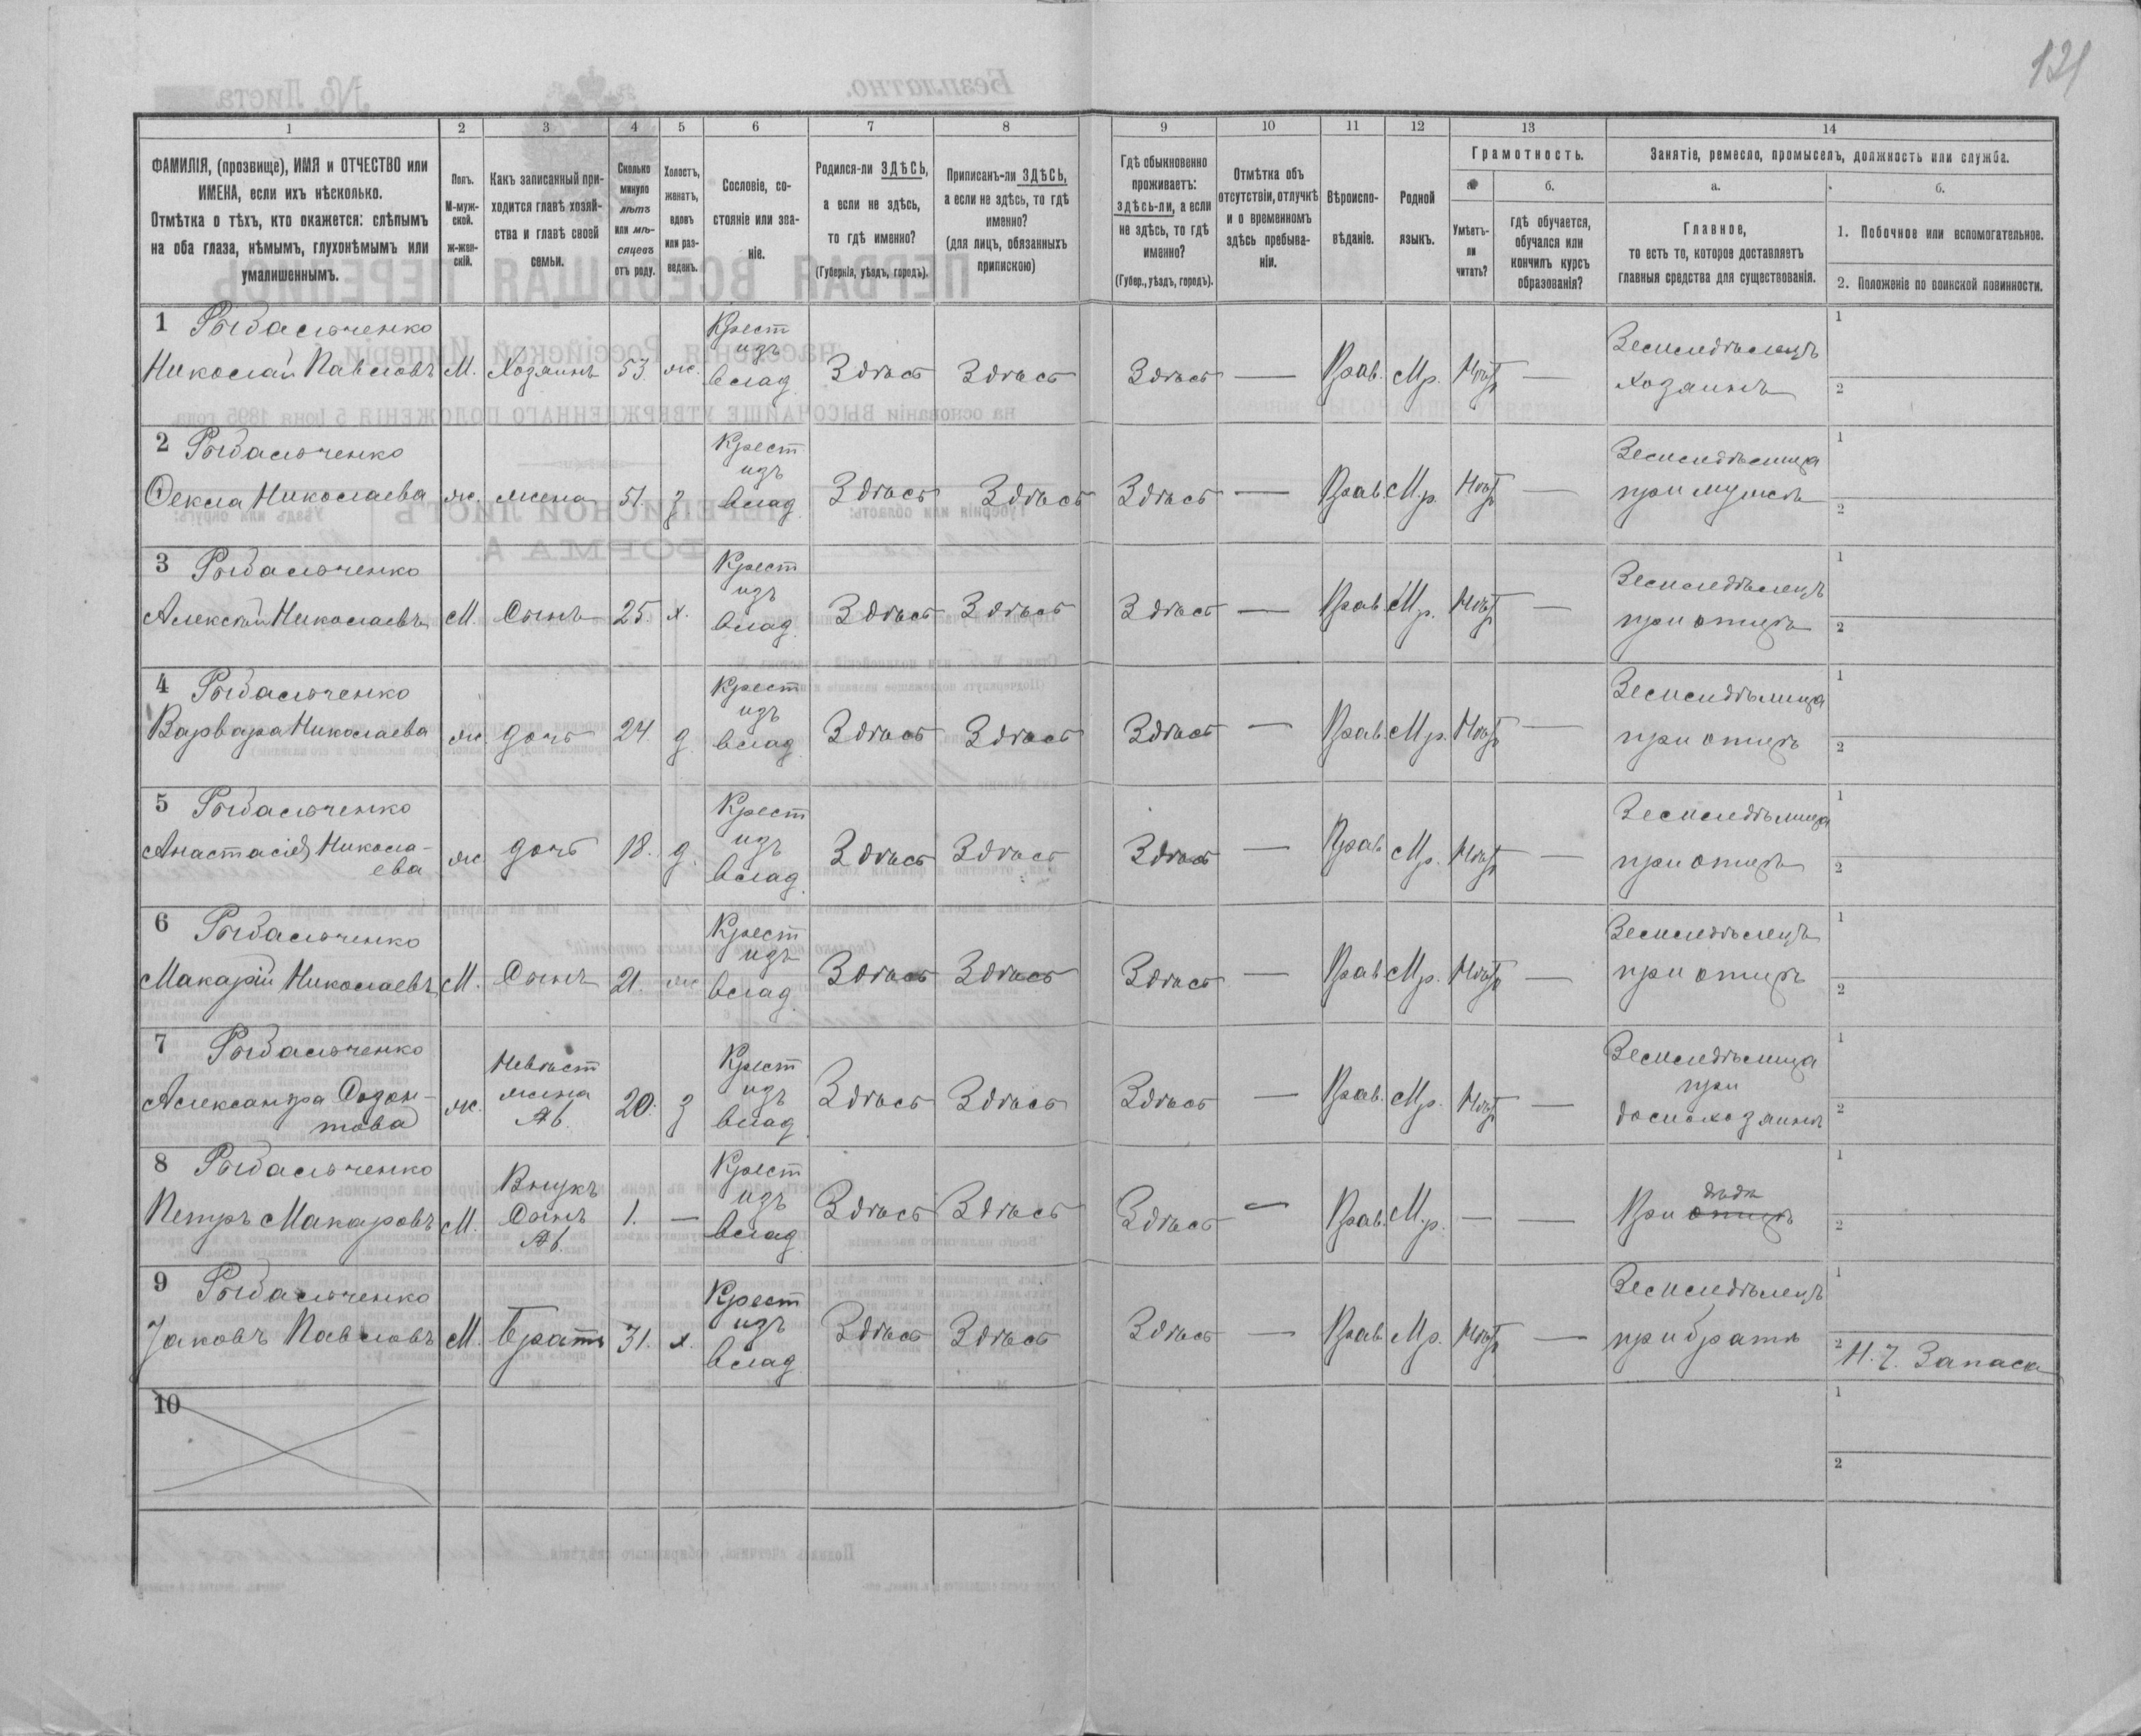 121
1
2
3
4
5
6
7
8
9
10
11
12
13
14
ФАМИЛІЯ, (прозвище), ИМЯ и ОТЧЕСТВО или
ИМЕНА, если ихъ нѣсколько.
Отмѣтка о тѣхъ, кто окажется: слѣпымъ
на оба глаза, нѣмымъ, глухонѣмымъ или
умалишеннымъ.
Полъ.
М-муж-
ской.
ж-жен-
скій.
Какъ записанный при-
ходится главѣ хозяй-
ства и главѣ своей
семьи.
Сколько
минуло
лѣтъ
или мѣ-
сяцевъ
отъ роду.
Холостъ,
женатъ,
вдовъ
или раз-
веденъ.
Сословіе, со-
стояніе или зва-
ніе.
Родился-ли ЗДѢСЬ,
а если не здѣсь,
то гдѣ именно?
(Губернія, уѣздъ, городъ).
Приписанъ-ли ЗДѢСЬ,
а если не здѣсь, то гдѣ
именно?
(для лицъ, обязанныхъ
припискою)
Гдѣ обыкновенно
проживаетъ:
здѣсь-ли, а если
не здѣсь, то гдѣ
именно?
(Губер., уѣздъ, городъ).
Отмѣтка объ
отсутствіи, отлучкѣ
и о временномъ
здѣсь пребыва-
ніи.
Вѣроиспо-
вѣданіе.
Родной
языкъ.
Грамотность.
а.
Умѣетъ-
ли
читать?
б.
гдѣ обучается,
обучался или
кончилъ курсъ
образованія?
Занятіе, ремесло, промыселъ, должность или служба.
а.
Главное,
то есть то, которое доставляетъ
главныя средства для существованія.
б.
1. Побочное или вспомогательное.
2. Положеніе по воинской повинности.
1 Рыбальченко
Николай Павловъ М. Хозяинъ 53. ж. Крест изъ влад. Здѣсь Здѣсь Здѣсь — Прав. Мр. Нѣтъ — Земледѣлецъ хозяинъ 1 2
2 Рыбальченко
Ѳекла Николаева ж. жена 51. з Крест изъ влад. Здѣсь Здѣсь Здѣсь — Прав. Мр. Нѣтъ — Земледѣлица при мужѣ 1 2
3 Рыбальченко
Алексѣй Николаевъ М. Сынъ 25. х. Крест изъ влад. Здѣсь Здѣсь Здѣсь — Прав. Мр. Нѣтъ — Земледѣлецъ при отцѣ 1 2
4 Рыбальченко
Варвара Николаева ж. дочь 24 д. Крест изъ влад. Здѣсь Здѣсь Здѣсь — Прав. Мр. Нѣтъ — Земледѣлица при отцѣ 1 2
5 Рыбальченко
Анастасія Никола-
ева ж дочь 18. д. Крест изъ влад. Здѣсь Здѣсь Здѣсь — Прав. Мр. Нѣтъ — Земледѣлица при отцѣ 1 2
6 Рыбальченко
Макарій Николаевъ М. Сынъ 21. ж Крест изъ влад. Здѣсь Здѣсь Здѣсь — Прав. Мр. Нѣтъ — Земледѣлецъ при отцѣ 1 2
7 Рыбальченко
Александра
ж. Невѣст жена 20. з Крест изъ влад. Здѣсь Здѣсь Здѣсь — Прав. Мр. Нѣтъ — Земледѣлица при домохозяинѣ 1 2
8 Рыбальченко
Петръ Макаровъ М. Внукъ Сынъ 1. — Крест изъ влад. Здѣсь Здѣсь Здѣсь — Прав. Мр. — — При отцѣ дѣдѣ 1 2
9 Рыбальченко
Іаковъ Павловъ М. Братъ 31. х. Крест изъ влад. Здѣсь Здѣсь Здѣсь — Прав. Мр. Нѣтъ — Земледѣлецъ при братѣ 1 2 Н. Ч. Запаса
10 1 2